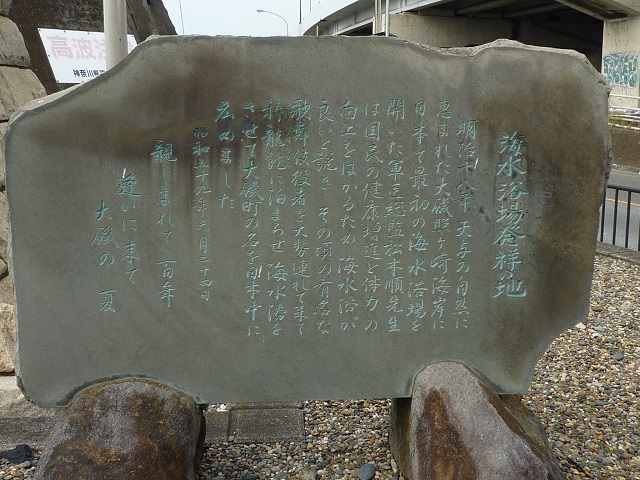 海水浴場発祥地
明治十八年 天与の自然に
恵まれた大磯照ヶ崎海岸に
日本で最初の海水浴場を
開いた軍医総監松本順先生
は国民の健康増進と体力の
向上をはかるため 海水浴が
良いと説き その頃の有名な
歌舞伎役者を大勢連れて来て
祷龍館に泊まらせ 海水浴を
させて大磯町の名を日本中に
広めました
昭和五十九年七月二十四日
親しまれて 百年
逢いに来て
大磯の 夏
高波
神奈川県